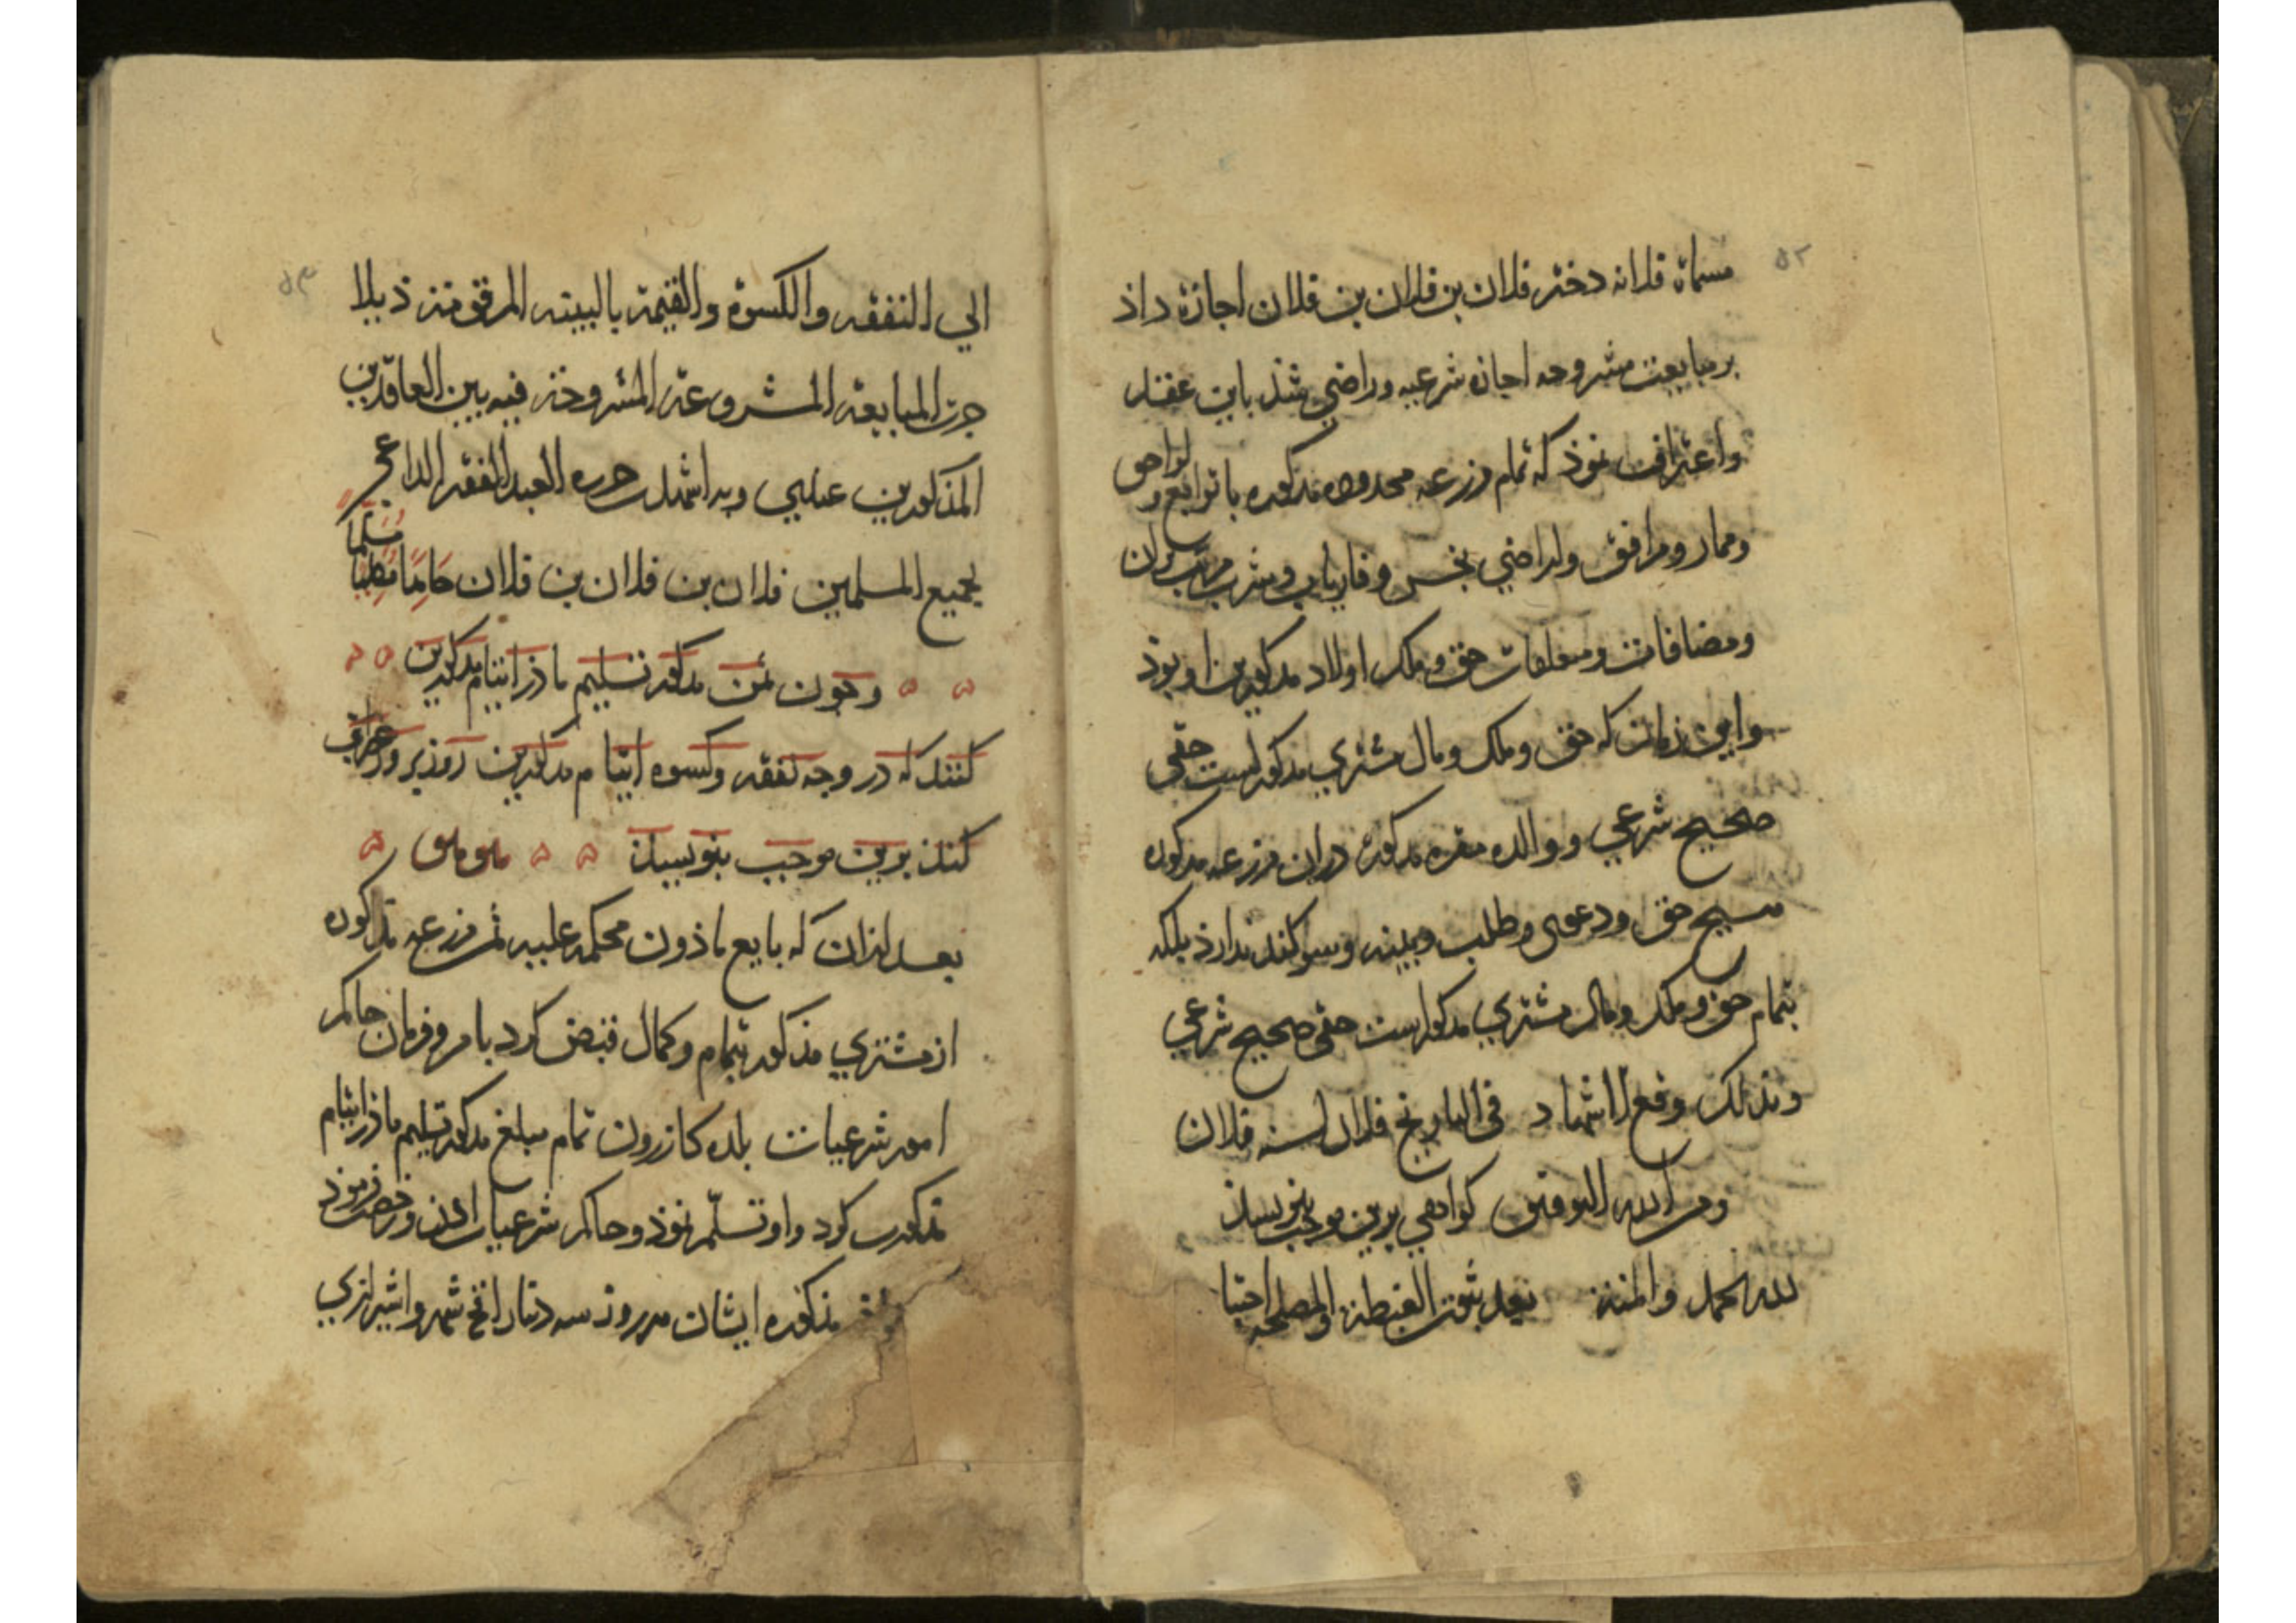 ۵۲
مسماة فلانه دختر فلان بن فلان بن فلان اجازة داذ
بر مبایعت مشروحه اجازه شرعیه وراضی شذ باین عقد
واعتراف نموذ که تمام مزرعه محدوده مذکوره با توابع و لواحق
وممار ومرافق واراضی بخس و فاریاب وشرب مرتب بران
ومضافات ومتعلقات حق وملک اولاد مذکورین او بوذ
واین زمان که حق وملک ومال مشتری مذکورست حقی
صحیح شرعی ووالده مقره مذکورة دران مزرعه مذکوره
هیچ حق ودعوی وطلب وبینه وسوکند ندارذ بلکه
بتمام حق وملک ومال مشتری مذکورست حقی صحیح شرعی
وبذلک وقع الاشهاد فی التاریخ فلان لسنه فلان
ومن الله التوفیق کواهی برین موجب بنویسند
لله الحمد والمنة بعد ثبوت الغبطة والمصلحه احتیا
۵۳
الی النفقه والکسوة والقیمة بالبینه المرقومة ذیلا
جرت المبایعة المشروعة المشروحة فیه بین العاقدین
المذکورین علیی وبه اشهد حرره العبد الفقیر الداعی
لجمیع المسلمین فلان بن فلان بن فلان حامدا مصلیا مسلما
وچون ثمن مذکور تسلیم ماذر ایتام مذکورین
کنند که در وجه نفقه وکسوه ایتام مذکورین
کنند برین موجب بنویسند
بعد ازان که بایع ماذون محکمه علیه ثمن مزرعه مذکوره
از مشتری مذکور بتمام وکمال قبض کرد بامر وفرمان حاکم
امور شرعیات بلده کازرون تمام مبلغ مذکور تسلیم ماذر ایتام
مذکورین کرد واو تسلم نموذ وحاکم شرعیات اذن ورخصت فرموذ
مذکوره ایشان هر روز سه دینار شیرازی